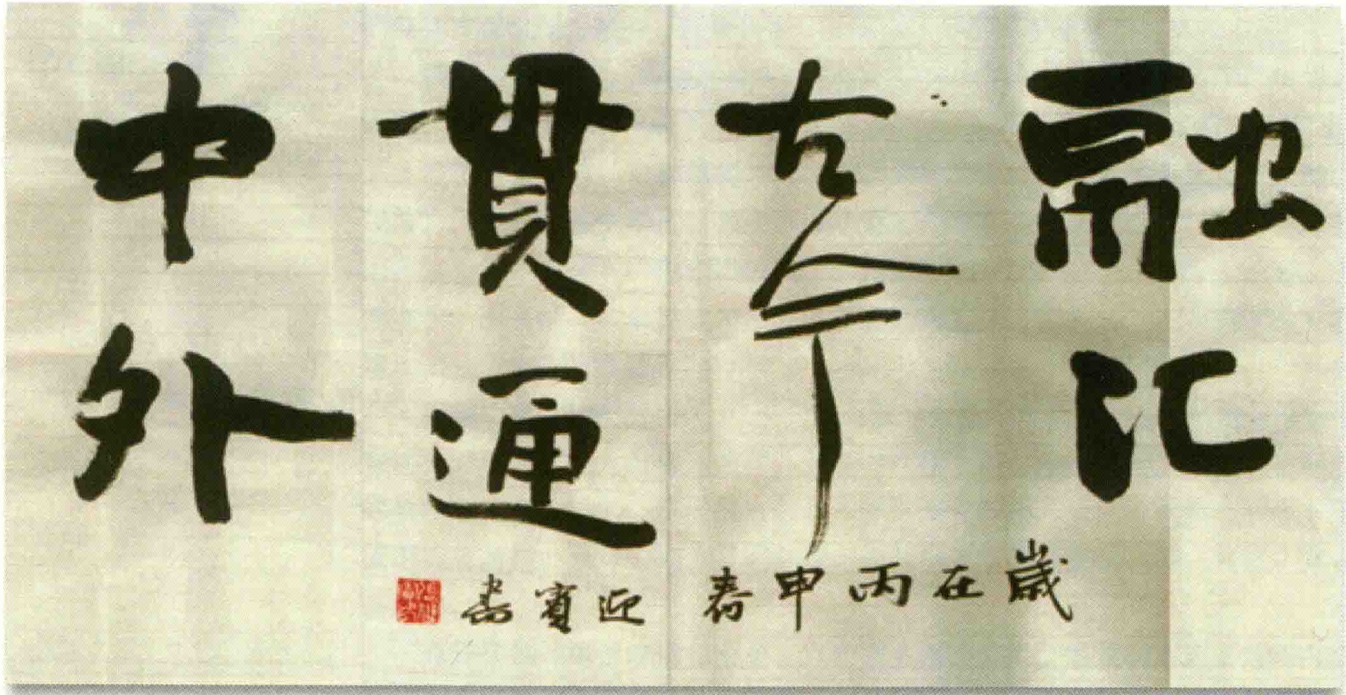 融汇
古今
貫通
中外
歲在丙申春
迎賓書